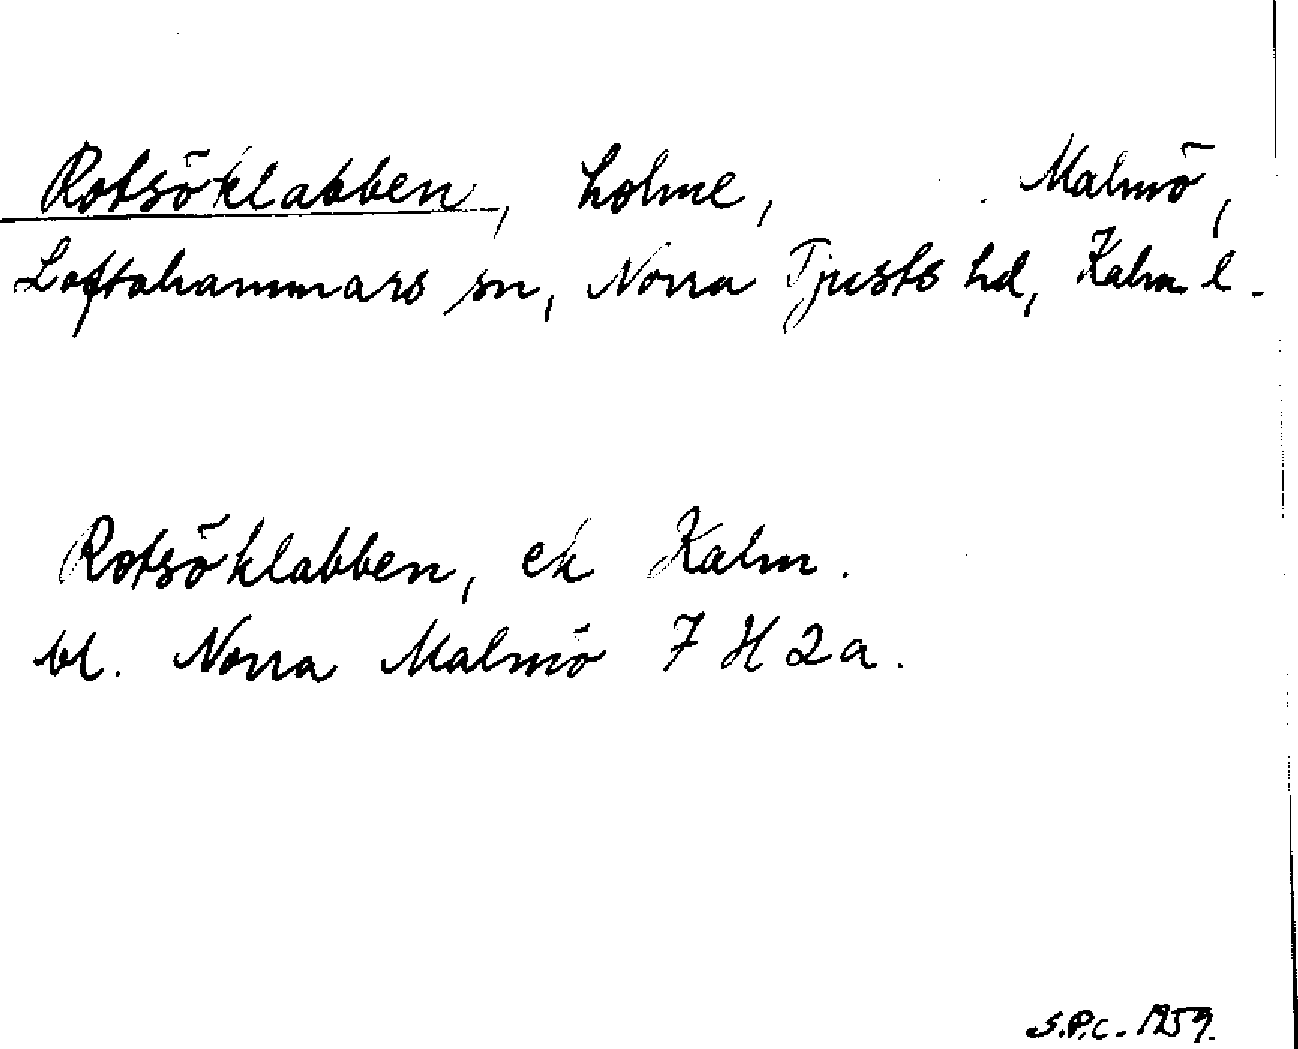 Rotsöklabben, holme, Malmö,
Loftahammars sn, Norra Tjusts hd, Kalm l.
Rotsöklabben, ek Kalm.
bl. Norra Malmö 7 H 2a.
S.P.C. 1959.